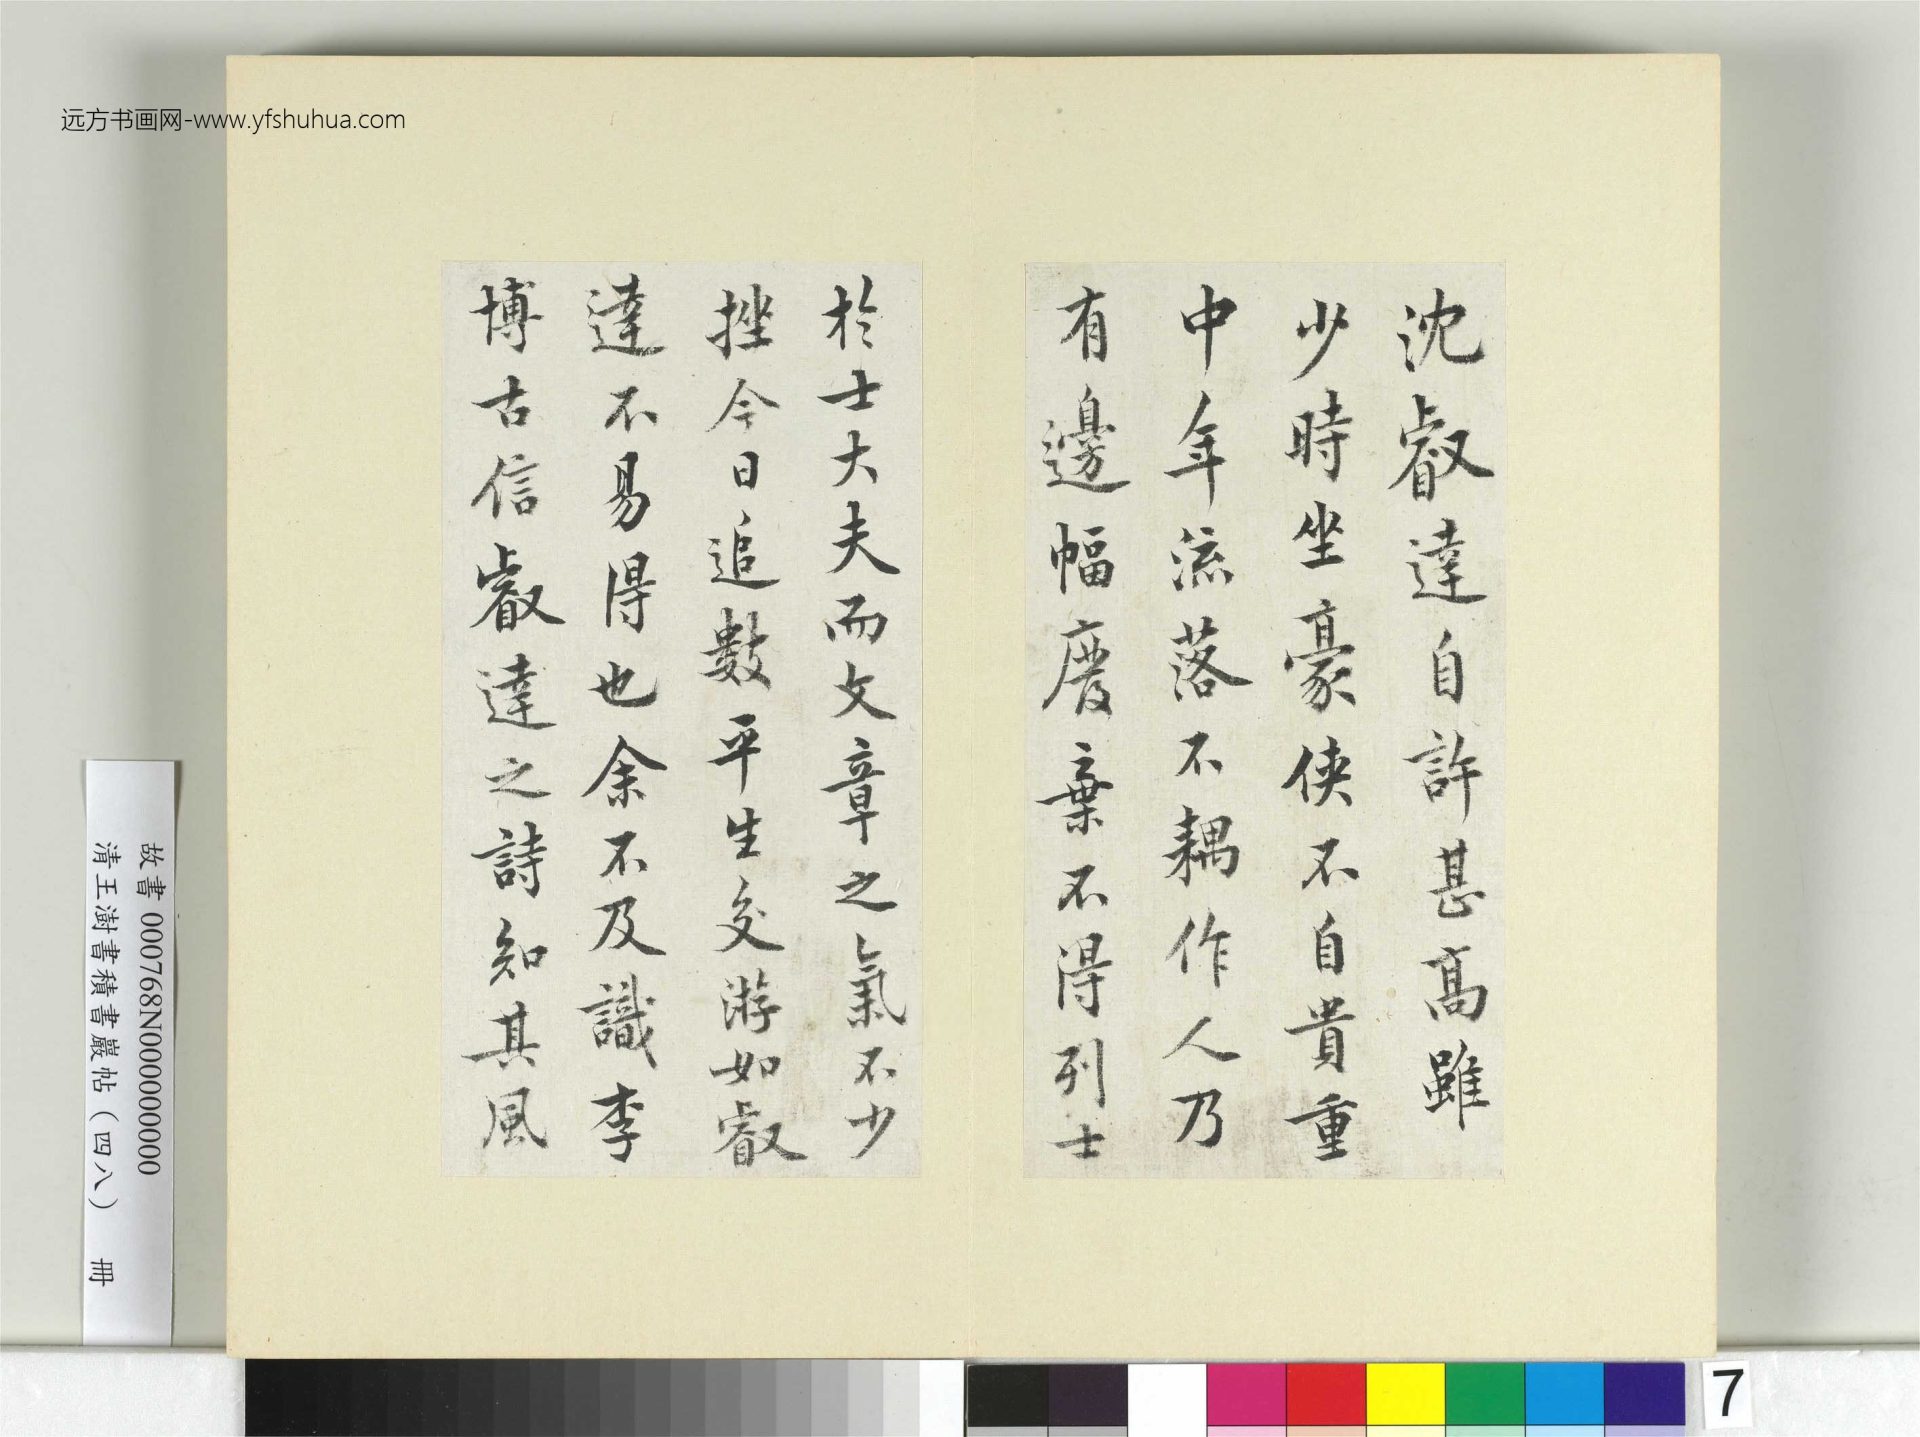 远方书画网-www.yfshuhua.com
沈叡達自許甚高雖
少時坐豪俠不自貴重
中年流落不耦作人乃
有邊幅廢棄不得列士
於士大夫而文章之氣不少
挫今日追數平生交游如叡
達不易得也余不及識李
博古信叡達之詩知其風
故書 000768N000000000
清王澍書積書巖帖（四八） 冊
7